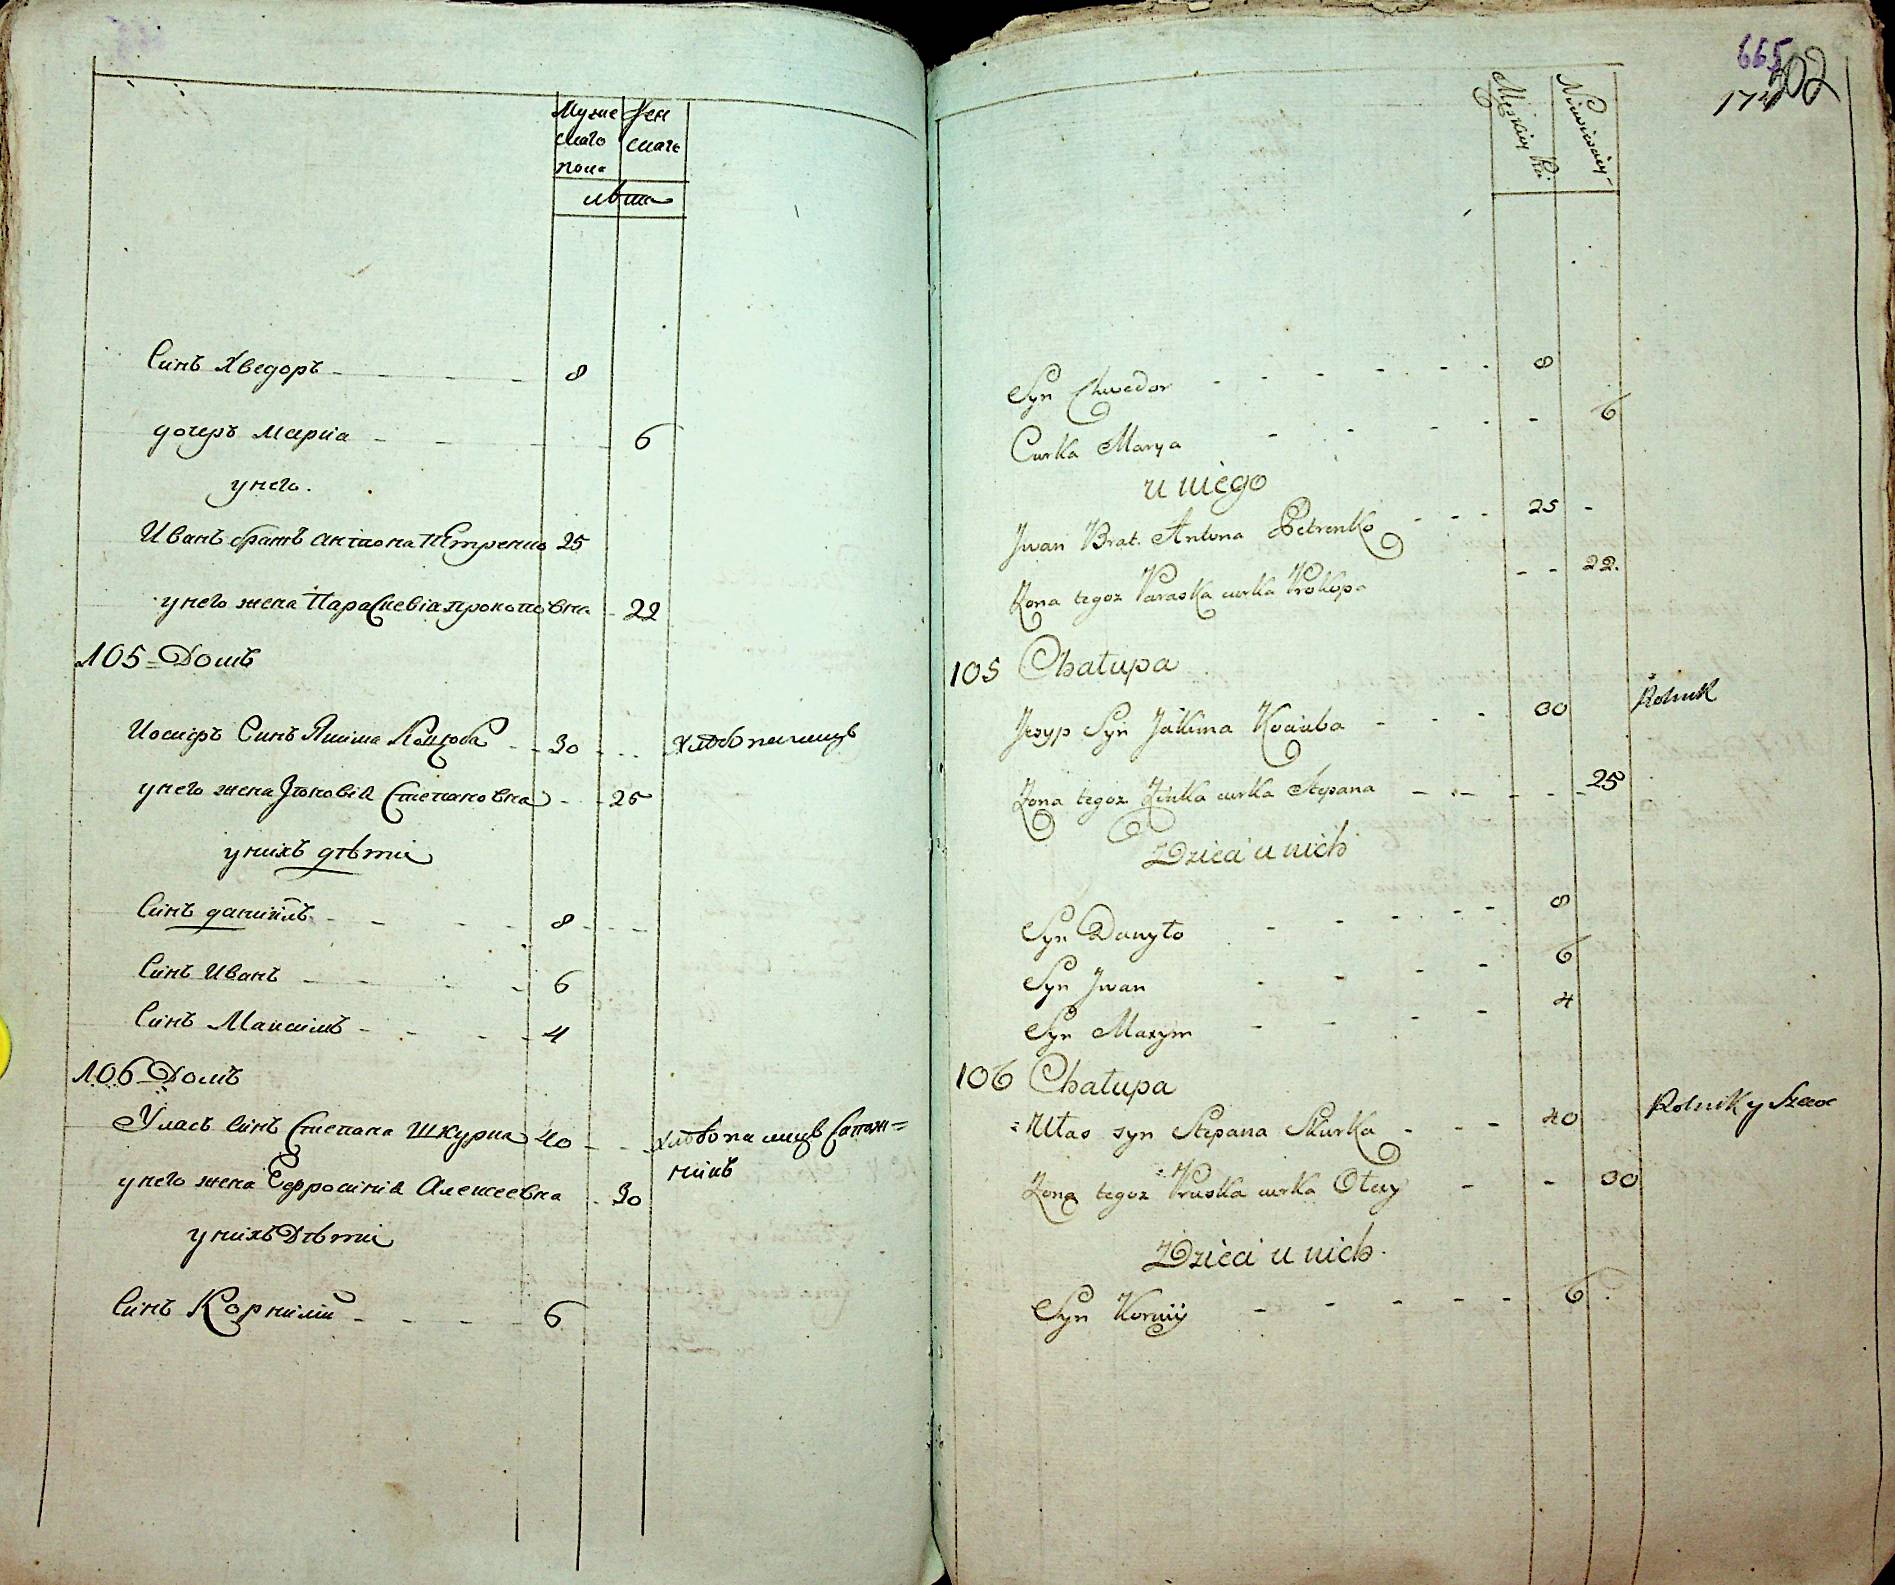 Муже Жен
скаго скаго
пола
лѣта
Синъ Хведоръ 8
дочеръ Мариа 6
у него.
Иванъ братъ Антона Петренко 25
у него жена Параскевіа Прокоповна 22
105 Домъ
Иосифъ Синъ Якима Коцюба 30 хлѣбопашецъ
у него жена Зѣновіа Степановна 25
у нихъ дѣти
Синъ Данѣилъ 8
Синъ Иванъ 6
Синъ Максимъ 4
106 Домъ
Уласъ Синъ Степана Шкурка 40 хлѣбопашецъ Сапож=
никъ
у него жена Ефросиніа Алексеевна 30
у нихъ Дѣти
Синъ Корнилій 6
665
202
174
Męskiey
Niewieściey
Syn Chwedor 8
Curka Marya 6
u niego
Jwan Brat Antona Petrenko 25
Żona tegoż Paraska curka Prokopa 22.
105 Chałupa
Jesyp Syn Jakima Kociuba 30 Rolnik
Żona tegoż Zinka curka Stepana 25
Dzieci u nich
Syn Danyło 8
Syn Jwan 6
Syn Maxym 4
106 Chałupa
Ułas syn Stepana Skurka 40 Rolnik y Szewc
Żona tegoż Pruska curka Olexy 30
Dzieci u nich
Syn Korniy 6